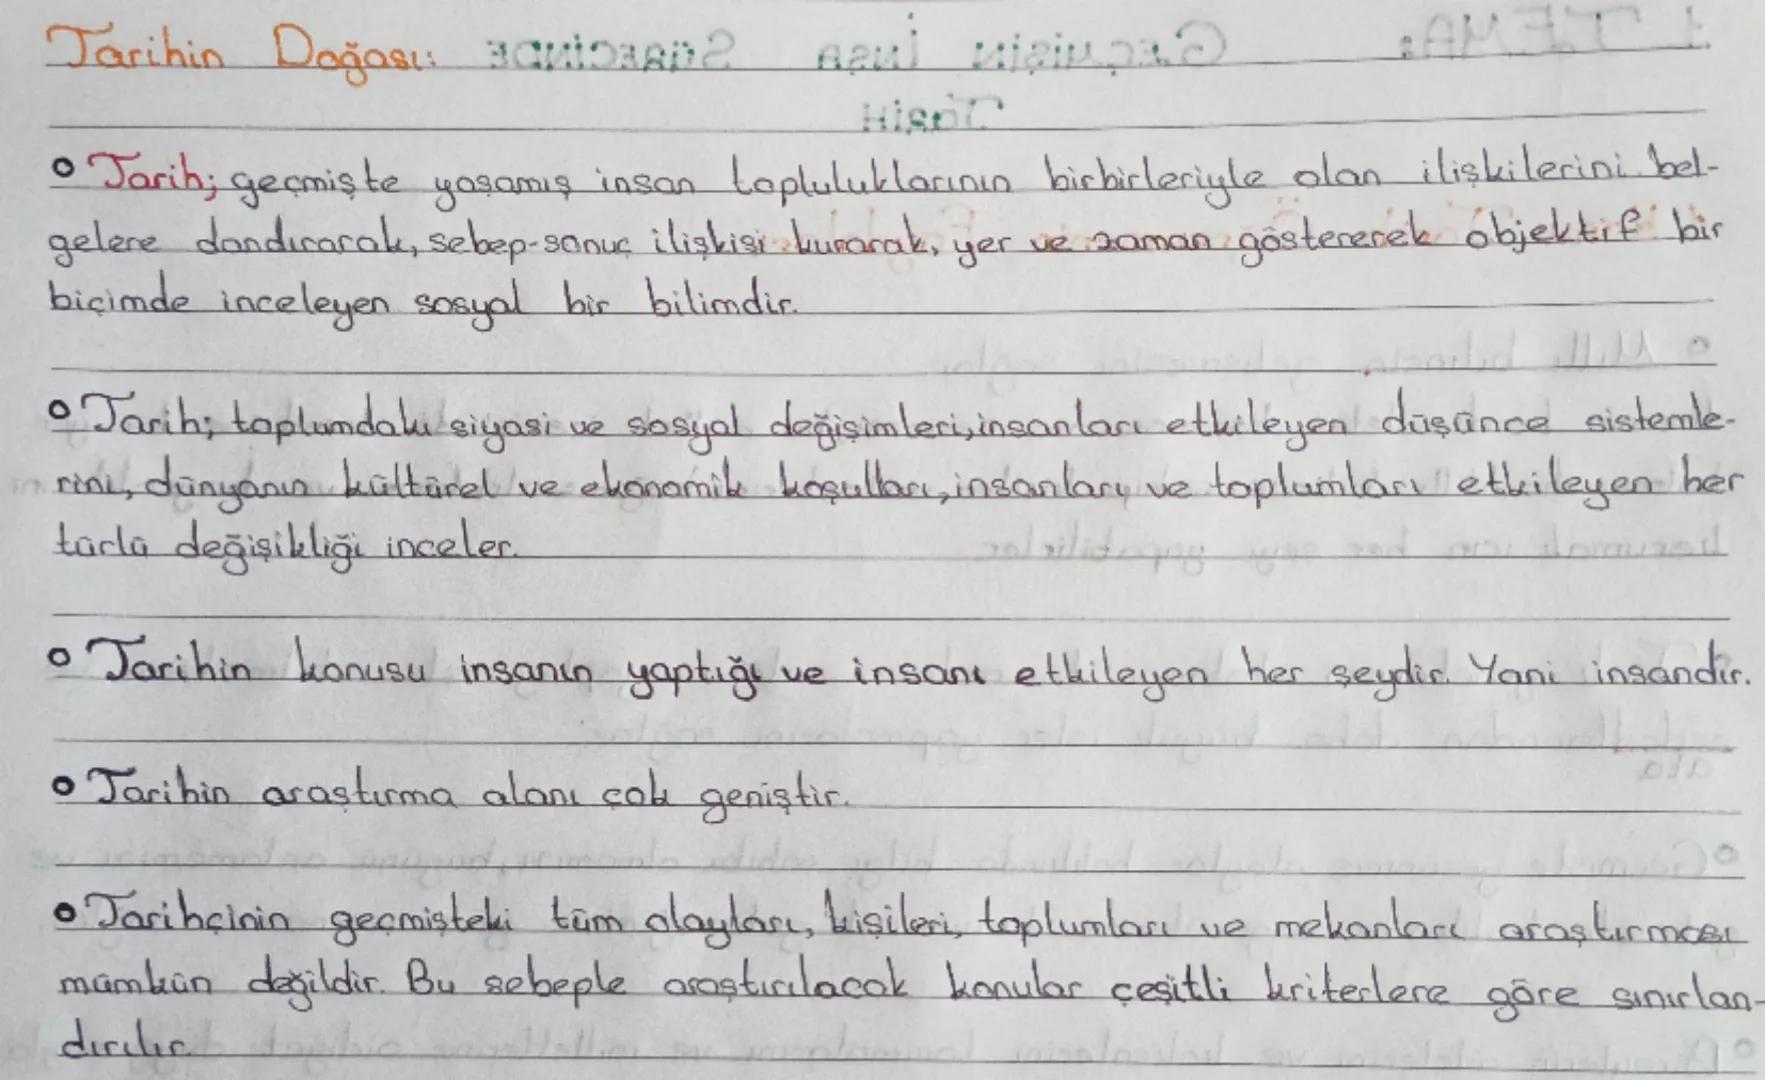 Tarihin Doğası:
Tarih; geçmişte yaşamış insan topluluklarının birbirleriyle olan ilişkilerini bel-
gelere dandırarak, sebep-sonuç ilişkisi kurarak, yer ve zaman göstererek objektif bir
biçimde inceleyen sosyal bir bilimdir.
Tarih; toplumdaki siyasi ve sosyal değişimleri, insanları etkileyen düşünce sistemle-
rini, dünyanın kültürel ve ekonomik koşulları, insanları ve toplumları etkileyen her
türlü değişikliği inceler.
Tarihin konusu insanın yaptığı ve insanı etkileyen her şeydir. Yani insandır.
Tarihin araştırma alanı çok geniştir.
Tarihçinin geçmişteki tüm olayları, kişileri, toplumları ve mekanları araştırması
mümkün değildir. Bu sebeple araştırılacak konular çeşitli kriterlere göre sınırlan-
dırılır.